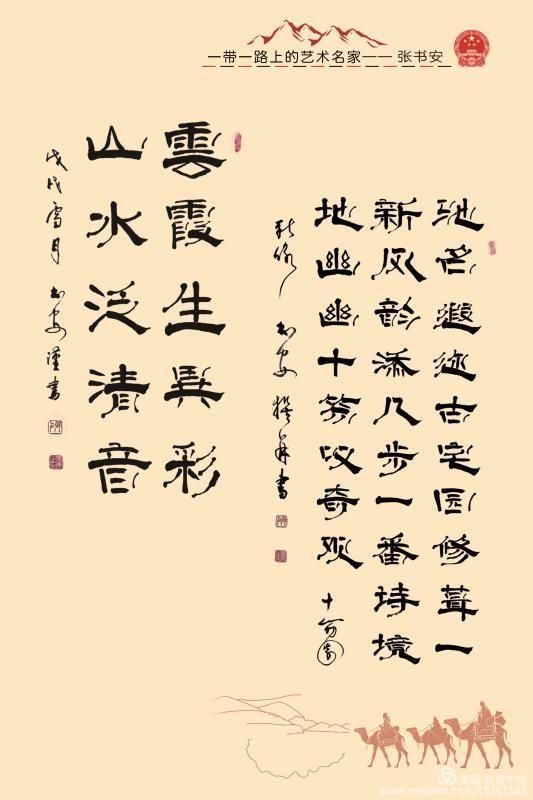 一带一路上的艺术名家—— 张书安
驰名遐迩古宅园修葺一
新风韵添几步一番诗境
地幽幽十笏叹奇观 十笏园
书安撰并书
雲霞生異彩
山水泛清音
戊戌雪月 书安谨書
美篇 @雪中梅
www.meipian.cn/c/15361582